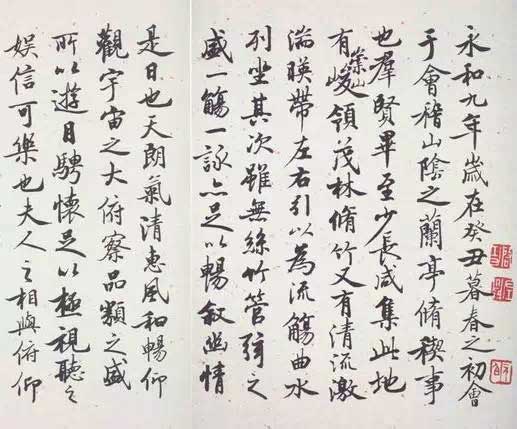 永和九年歲在癸丑暮春之初會
于會稽山陰之蘭亭脩禊事
也羣賢畢至少長咸集此地
有崇山峻領茂林脩竹又有清流激
湍暎帶左右引以為流觴曲水
列坐其次雖無絲竹管弦之
盛一觴一詠亦足以暢敘幽情
是日也天朗氣清惠風和暢仰
觀宇宙之大俯察品類之盛
所以遊目騁懷足以極視聽之
娛信可樂也夫人之相與俯仰